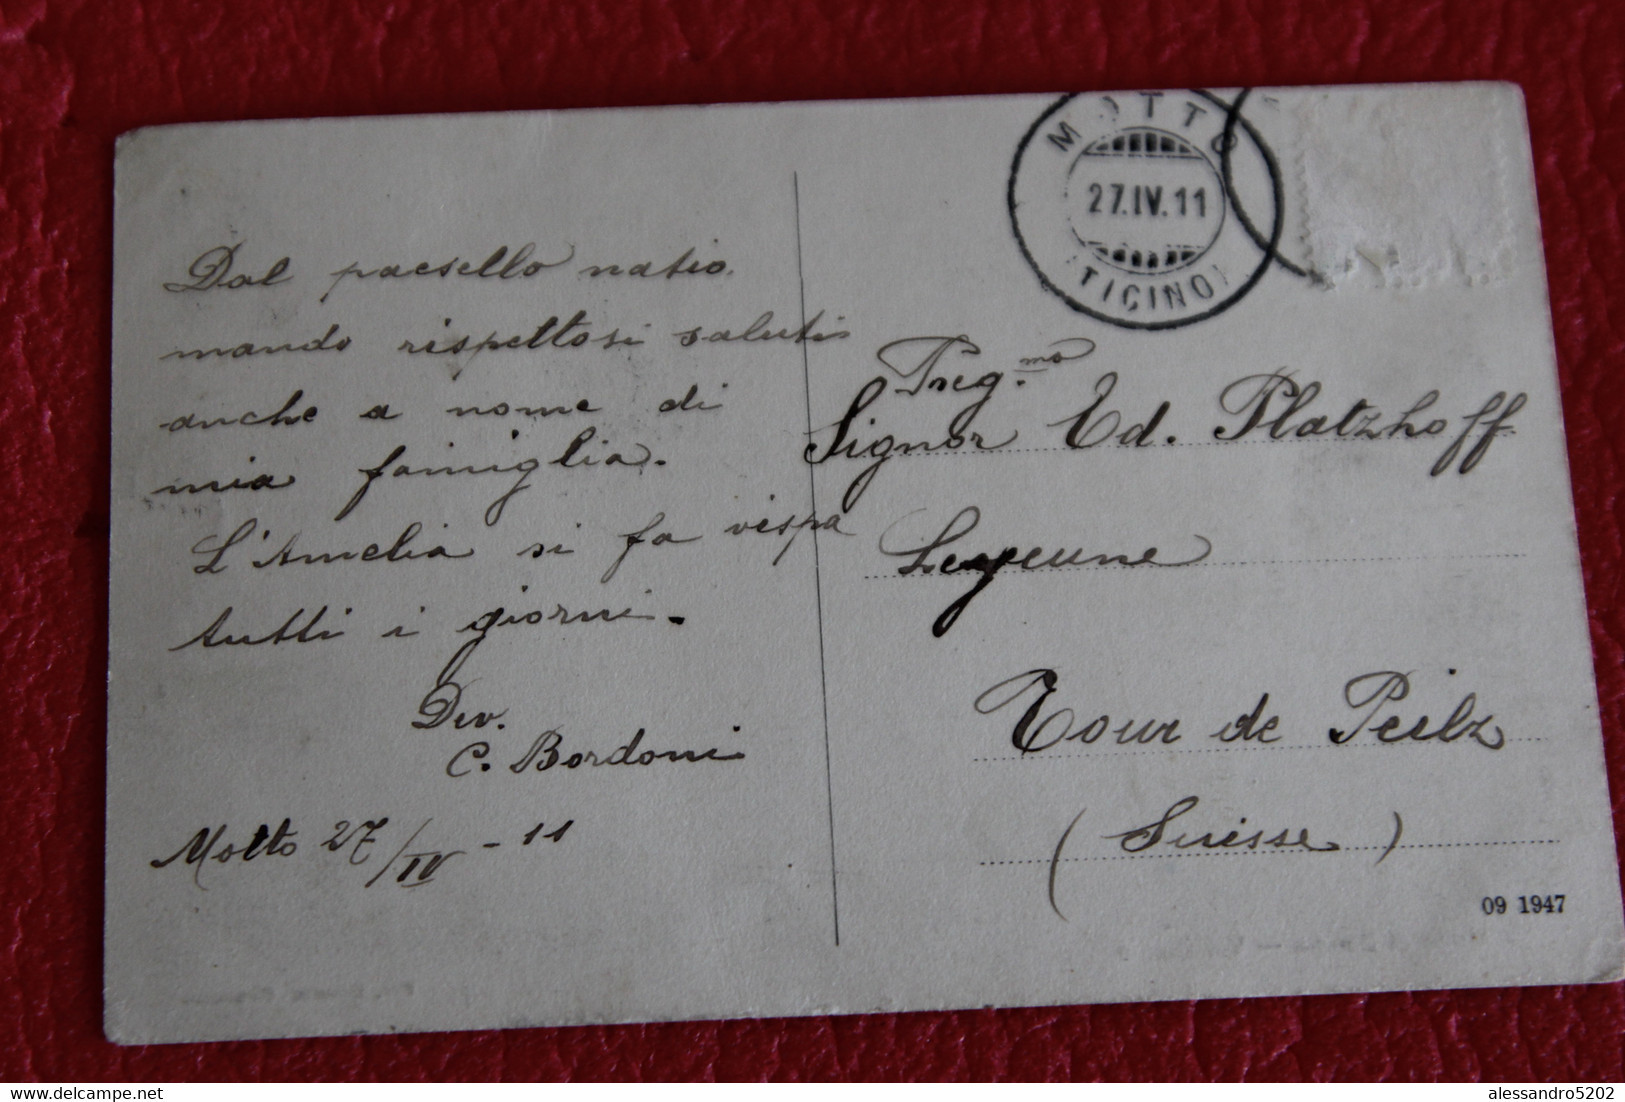 Dal paesello natio
mando rispettosi saluti
anche a nome di
mia famiglia.
L'Amelia si fa vispa
tutti i giorni.
Dev.
C. Bordoni
Motto 27/IV - 11
MOTTO
27.IV.11
(TICINO)
Preg.mo
Signor Ed. Platzhoff
Leyeune
Tour de Peilz
(Suisse)
09 1947
delcampe.net
alessandro5202